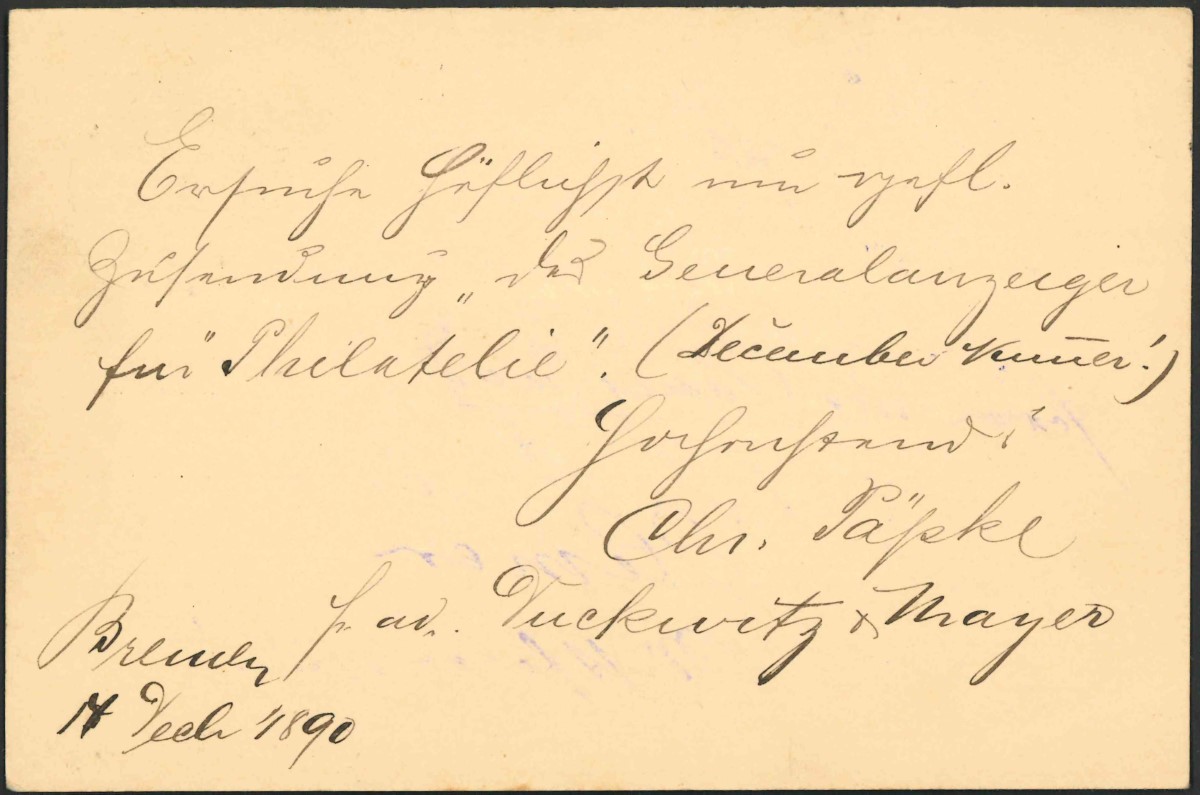 Ersuche höflichst um gefl.
Zusendung „des Generalanzeiger
für Philatelie“. (December Numer!)
Hochachtend
Chr. Päpke
p. ad. Duckwitz & Mayer
Bremen
14 Decb 1890